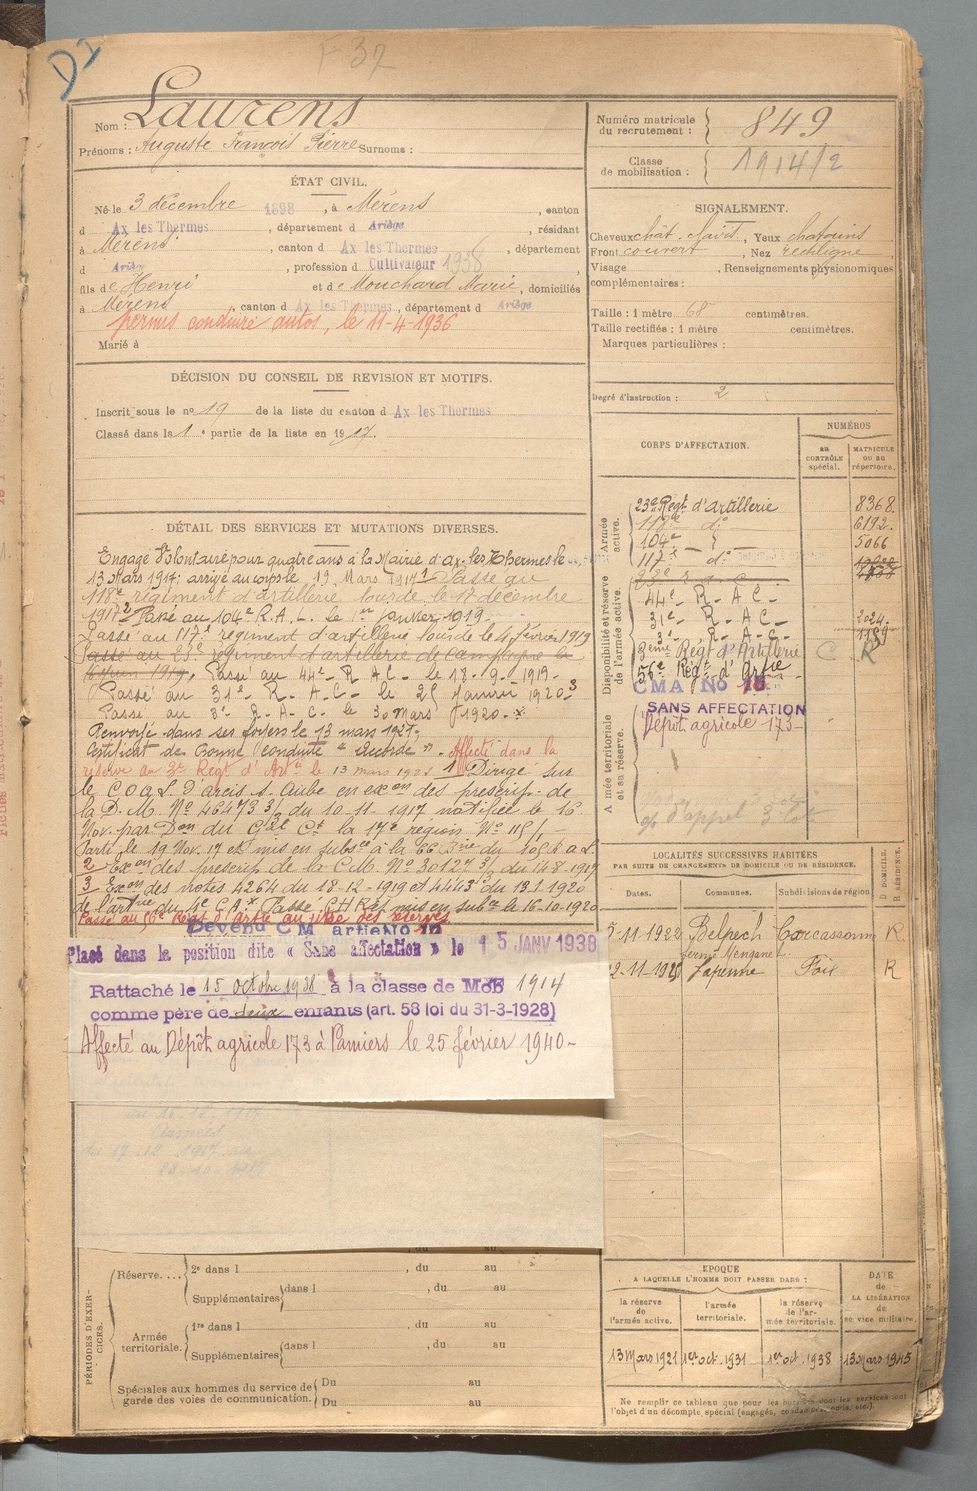 D I
F 37
Nom : Laurens
Prénoms : Auguste François Pierre Surnoms :
ÉTAT CIVIL.
Né le 3 décembre 1898, à Mérens, canton
d Ax les Thermes, département d Ariège, résidant
à Mérens, canton d Ax les Thermes, département
d Ariège, profession d Cultivateur 1938
fils de Henri et de Mouchard Marie, domiciliés
à Mérens, canton d Ax les Thermes, département d Ariège
permis conduire autos, le 11-4-1936
Marié à
DÉCISION DU CONSEIL DE REVISION ET MOTIFS.
Inscrit sous le no 19 de la liste du canton d Ax les Thermes
Classé dans la 1e partie de la liste en 1917.
DÉTAIL DES SERVICES ET MUTATIONS DIVERSES.
Engagé Volontaire pour quatre ans à la Mairie d'Ax-les-Thermes le
13 Mars 1917: arrivé au corps le 19 Mars 1917 1 Passé au
118e régiment d'artillerie lourde, le 17 décembre
1917 2 Passé au 104e R.A.L. le 1er janvier 1919-
Passé au 117e régiment d'artillerie lourde le 4 février 1919
Passé au 23e régiment d'artillerie de campagne le
1919. Passé au 44e R A C- le 18-9-1919-
Passé au 31e R-A-C- le 25 Janvier 1920-3
Passé au 3e R-A-C- le 30 Mars 1920-
Renvoyé dans ses foyers le 13 mars 1921;
Certificat de Bonne Conduite "accordé". Affecté dans la
réserve au 3e Regt d'Artie le 13 mars 1921 1 Dirigé sur
le C O A L d'Arcis s. Aube en exon des prescrip. de
la D.M. No 46473 3/3 du 10-11-1917 notifiée le 16
Nov. par Don du Gal Ct la 17e région No 115/1-
Parti le 19 Nov. 17 et mis en subce à la 66
2 Exon des prescrip de la C.M. No 30127 3/3 du 14-8-1917
3 Exon des notes 4264 du 18-12-1919 et 4443 du 13-1-1920
mis en subce le 16-10-1920
Passé au 56e Régt d'artie au titre des réserves
Devenu CM artie No 16
Placé dans la position dite « Sans affectation » le 15 JANV 1938
Rattaché le 15 octobre 1938 à la classe de Mob 1914
comme père de deux enfants (art. 58 loi du 31-3-1928)
Affecté au Dépôt agricole 173 à Pamiers le 25 février 1940-
PÉRIODES D'EXERCICES.
Réserve.... 2e dans l , du au
Supplémentaires dans l , du au
Armée territoriale. 1re dans l , du au
Supplémentaires dans l , du au
Spéciales aux hommes du service de garde des voies de communication. Du au
Du au
Numéro matricule du recrutement : 849
Classe de mobilisation : 1914/2
SIGNALEMENT.
Cheveux chât. clairs, Yeux chatains
Front couvert, Nez rectiligne
Visage , Renseignements physionomiques
complémentaires :
Taille : 1 mètre 68 centimètres.
Taille rectifiée : 1 mètre centimètres.
Marques particulières :
Degré d'instruction : 2
CORPS D'AFFECTATION.
NUMÉROS
AU CONTRÔLE spécial.
MATRICULE OU AU répertoire.
Armée active.
23e Regt d'artillerie 8368.
118e do 6192.
104e 5066
117e do
Disponibilité et réserve de l'armée active.
44e- R- A C-
31e- R- A C- 2024-
3e- R- A- C- 1189
3ème Régt d'Artillerie C R
56e Régt d'Artie
CMA No 16
SANS AFFECTATION
Armée territoriale et sa réserve.
Dépôt agricole 173-
LOCALITÉS SUCCESSIVES HABITÉES
PAR SUITE DE CHANGEMENTS DE DOMICILE OU DE RÉSIDENCE.
Dates. Communes. Subdivisions de région D DOMICILE. R RÉSIDENCE.
5-11-1922 Belpech Carcassonne R
ferme Mengane
Lapenne Foix R
EPOQUE
A LAQUELLE L'HOMME DOIT PASSER DANS :
la réserve de l'armée active. l'armée territoriale. la réserve de l'armée territoriale.
DATE de LA LIBÉRATION du service militaire.
13 Mars 1921 1er oct. 1931 1er oct. 1938 13 Mars 1945
Ne remplir ce tableau que pour les hommes dont les services sont
l'objet d'un décompte spécial (engagés, condamnés, omis, etc.).